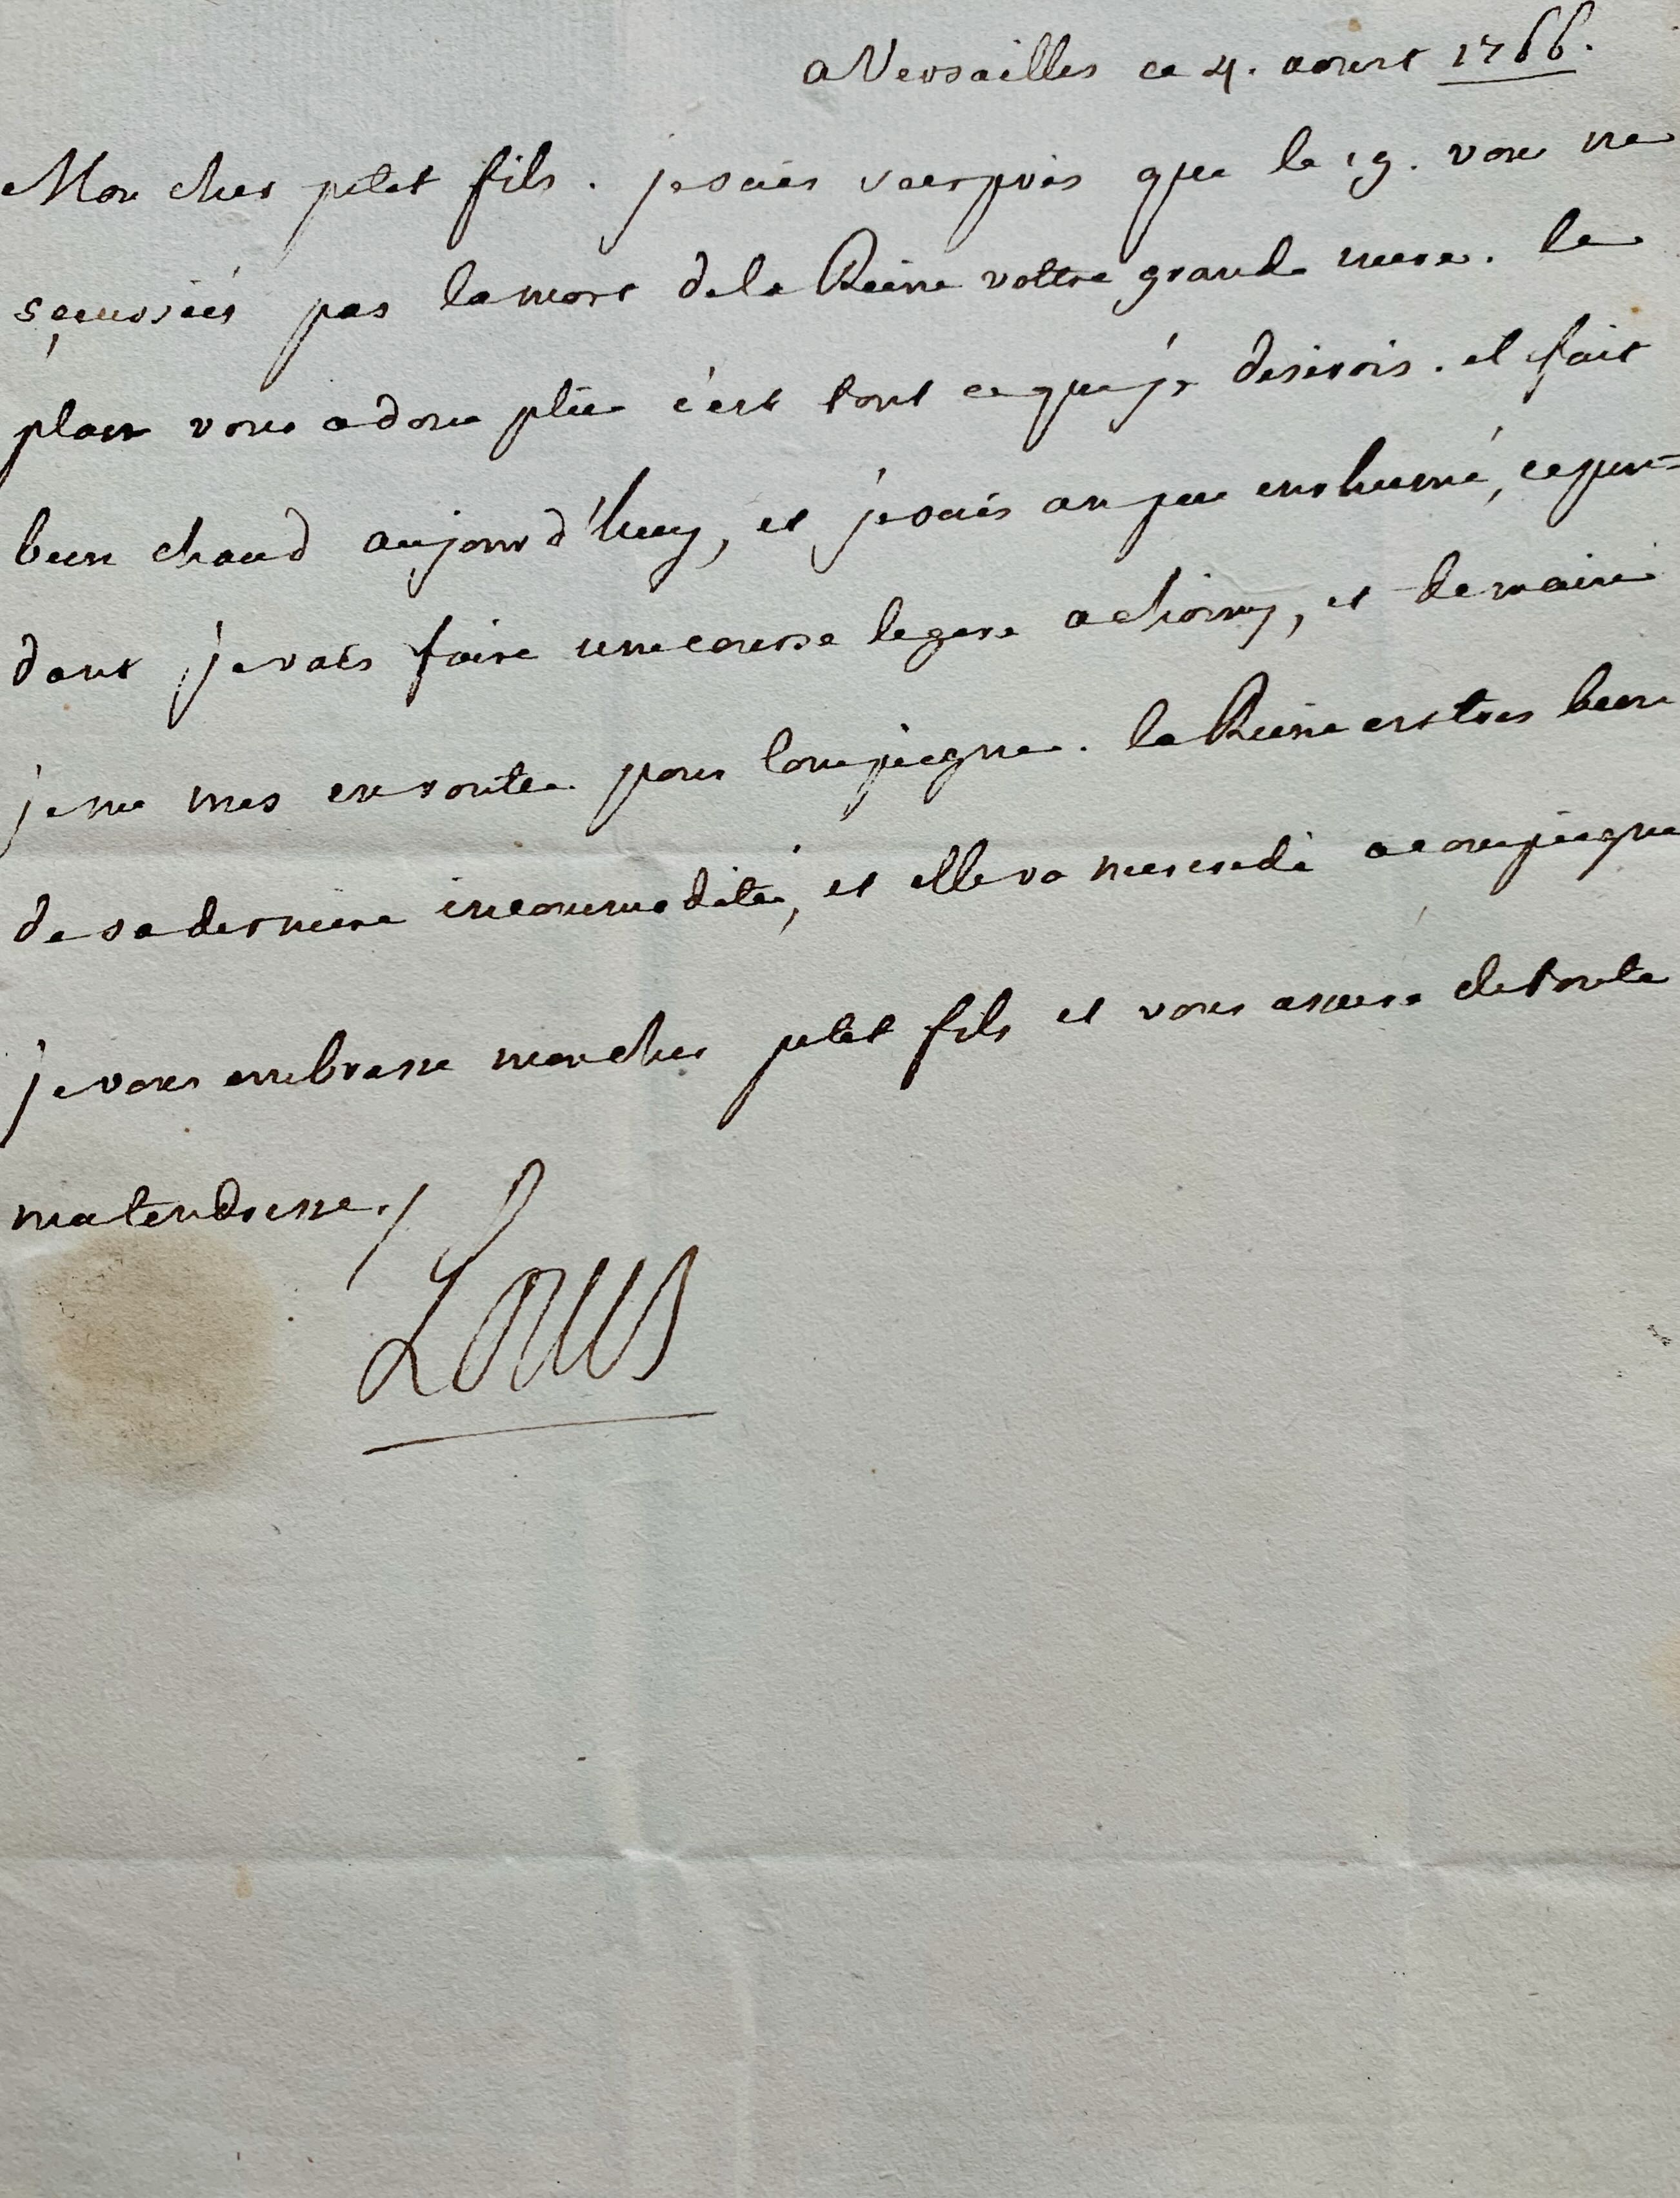 a Versailles ce 4. aoust 1766.
Mon cher petit fils. je suis surpris que le 19. vous ne
sçeussiés pas la mort de la Reine vostre grande mere. le
plan vous a donc plû c'est tout ce que je desirois. il fait
bien chaud aujourd'huy, et je suis un peu enrhumé, cepen=
dant je vais faire une course legere a choisy, et demain
je me mes en route pour Compiegne. la Reine est tres bien
de sa derniere incommodité, et elle va mercredi a compiegne
je vous embrasse mon cher petit fils et vous assure de toute
ma tendresse./
Louis